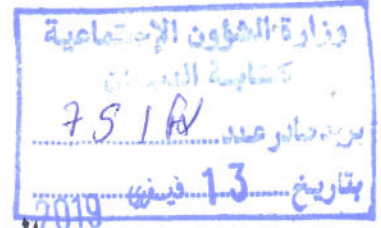 وزارة الشؤون الإجتماعية
كتابة
بريد صادر عدد
بتاريخ 13 فيفري 2019